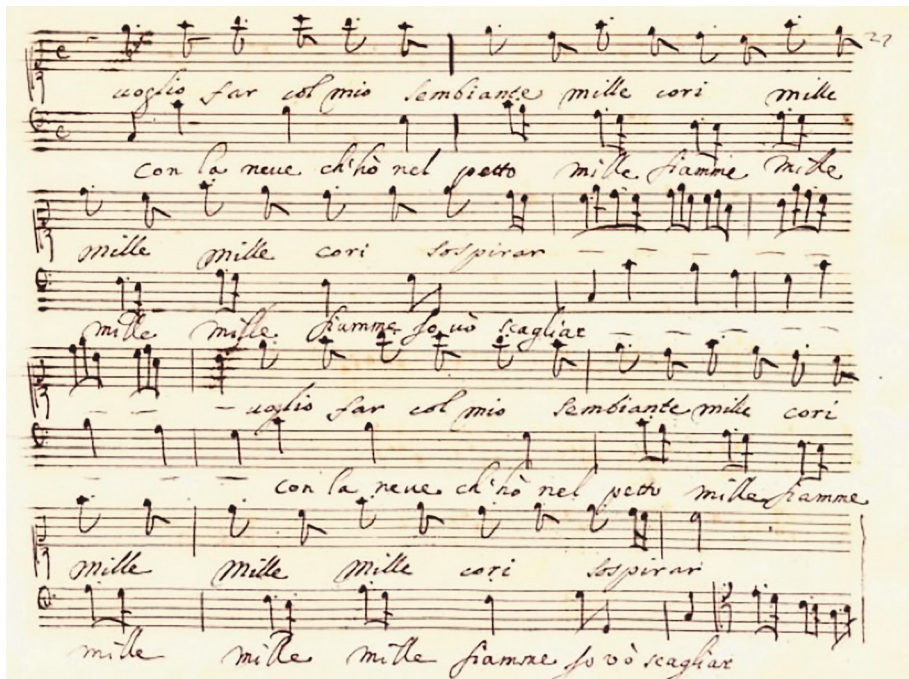 27
voglio far col mio sembiante mille cori mille
con la neve ch'hò nel petto mille fiamme mille
mille mille cori sospirar
mille mille fiamme so vò scagliar
voglio far col mio sembiante mille cori
con la neve ch'hò nel petto mille fiamme
mille mille mille cori sospirar
mille mille mille fiamme so vò scagliar